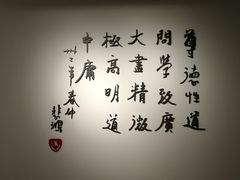 尊德性道
問學致廣
大盡精微
極高明道
中庸
年春仲
悲鴻